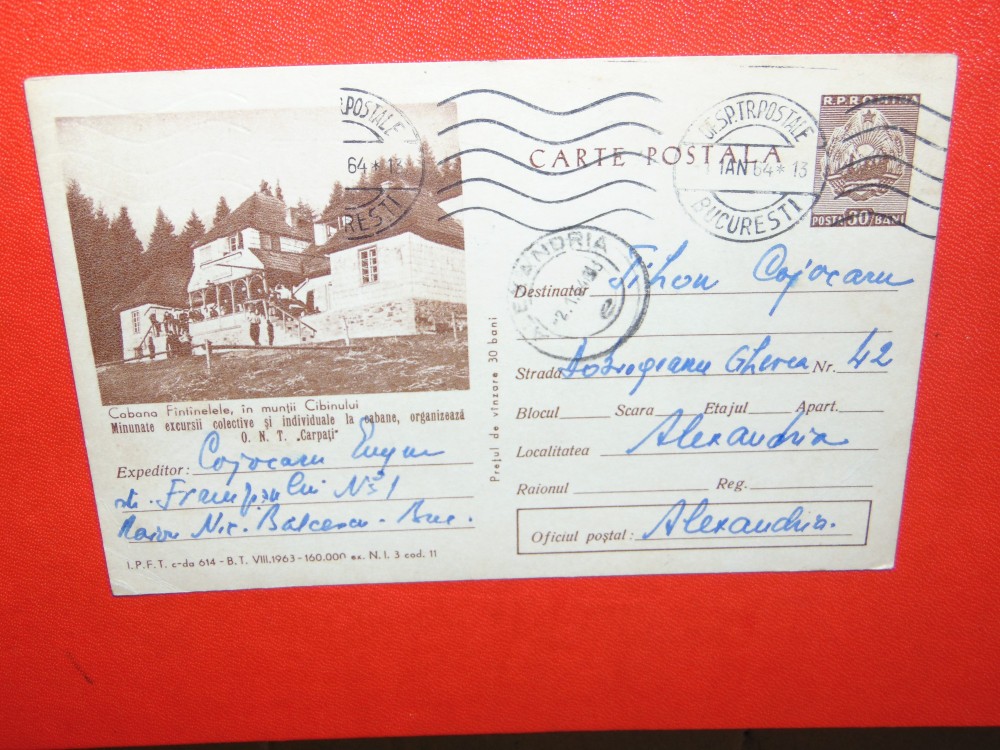 .POSTALE
64 * 13
REȘTI
OF.SP.TR.POSTALE
1 IAN 64 * 13
BUCUREȘTI
R.P.ROMINA
POSTA 30 BANI
CARTE POSTALĂ
ALEXANDRIA
-2.1.64
Destinatar Tihon Cojocaru
Strada Dobrogeanu Gherea Nr. 42
Blocul Scara Etajul Apart.
Localitatea Alexandria
Raionul Reg.
Oficiul poștal: Alexandria.
Prețul de vînzare 30 bani
Cabana Fîntînelele, în munții Cibinului
Minunate excursii colective și individuale la cabane, organizează
O. N. T. „Carpați"
Expeditor: Cojocaru Eugen
str. No 1
Raion Nic. Balcescu - Buc.
I.P.F.T. c-da 614 - B.T. VIII.1963 - 160.000 ex. N.I. 3 cod. 11